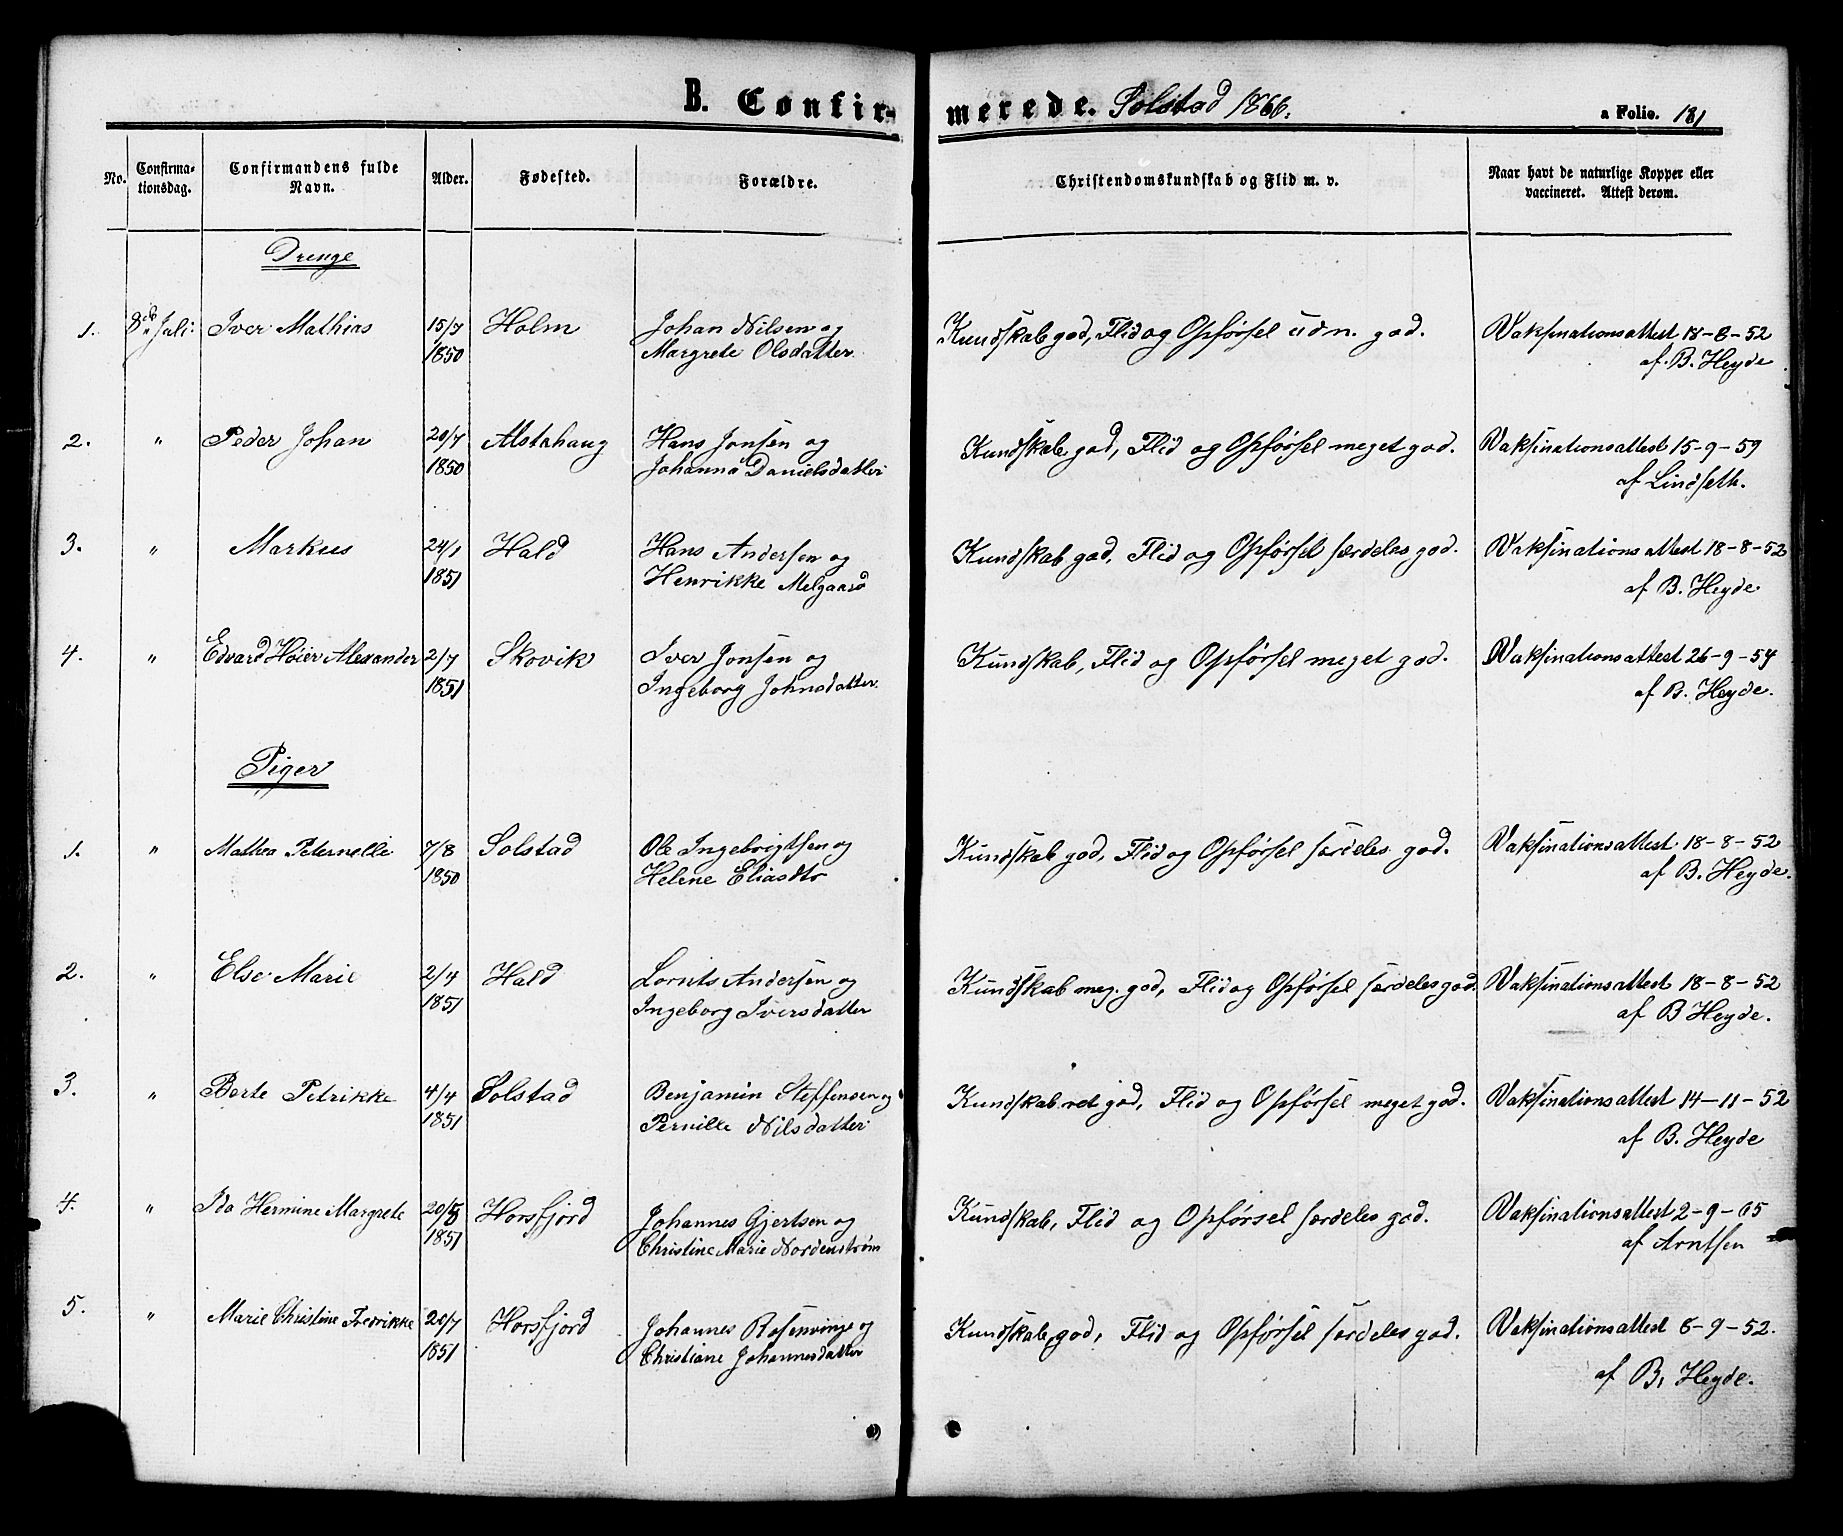 B. Confirmerede. Solstad 1866. a Folio. 181
No. Confirmationsdag. Confirmandens fulde Navn. Alder. Fødested. Forældre. Christendomskundskab og Flid m. v. Naar havt de naturlige Kopper eller vaccineret. Attest derom.
Drenge
1. 8de Juli: Iver Mathias 15/7 Holm Johan Nilsen og Kundskab god, Flid og Opførsel udm. god. Vaksinationsattest 18-8-52
1850 Margrete Olsdatter af B. Heyde
2. " Peder Johan 20/7 Alstahaug Hans Jonsen og Kundskab god, Flid og Opførsel meget god. Vaksinationsattest 15-9-59
1850 Johanna Danielsdatter af Lindseth.
3. " Markus 24/1 Hald Hans Andersen og Kundskab god, Flid og Opførsel særdeles god. Vaksinationsattest 18-8-52
1851 Henrikke Melgaard af B. Heyde
4. " Edvard Høier Alexander 2/7 Skovik Iver Jonsen og Kundskab, Flid og Opførsel meget god. Vaksinationsattest 26-9-54
1851 Ingeborg Johnsdatter. af B. Heyde.
Piger
1. " Mathea Peternelle 7/8 Solstad Ole Ingebrigtsen og Kundskab god, Flid og Opførsel særdeles god. Vaksinationsattest 18-8-52
1850 Helene Eliasdtr af B. Heyde.
2. " Else Marie 2/4 Hald Lornts Andersen og Kundskab meg. god, Flid og Opførsel særdeles god. Vaksinationsattest 18-8-52
1851 Ingeborg Iversdatter af B Heyde.
3. " Berte Petrikke 4/4 Solstad Benjamin Steffensen og Kundskab ret god, Flid og Opførsel meget god. Vaksinationsattest 14-11-52
1851 Pernille Nilsdatter af B. Heyde
4. " Ida Hermine Margrete Horsfjord Johannes Gjertsen og Kundskab, Flid og Opførsel særdeles god. Vaksinationsattest 2-9-65
1851 Christine Marie Nordenstrøm af Arntsen
5. " Marie Christine Fredrikke 20/7 Horsfjord Johannes Rosenvinge og Kundskab god, Flid og Opførsel særdeles god. Vaksinationsattest 6-9-52.
1851 Christiane Johannesdatter af B. Heyde.